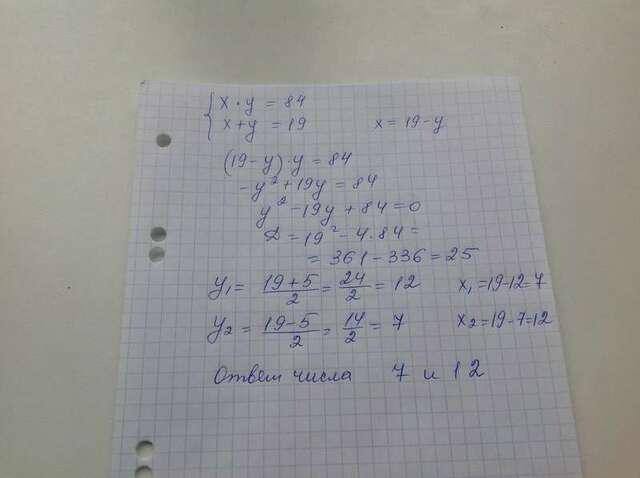 x · y = 84
x + y = 19 x = 19 - y
(19 - y) · y = 84
- y² + 19y = 84
y² - 19y + 84 = 0
D = 19² - 4 · 84 =
= 361 - 336 = 25
y₁ = (19 + 5)/2 = 24/2 = 12 x₁ = 19-12=7
y₂ = (19 - 5)/2 = 14/2 = 7 x₂ = 19-7=12
Ответ числа 7 и 12